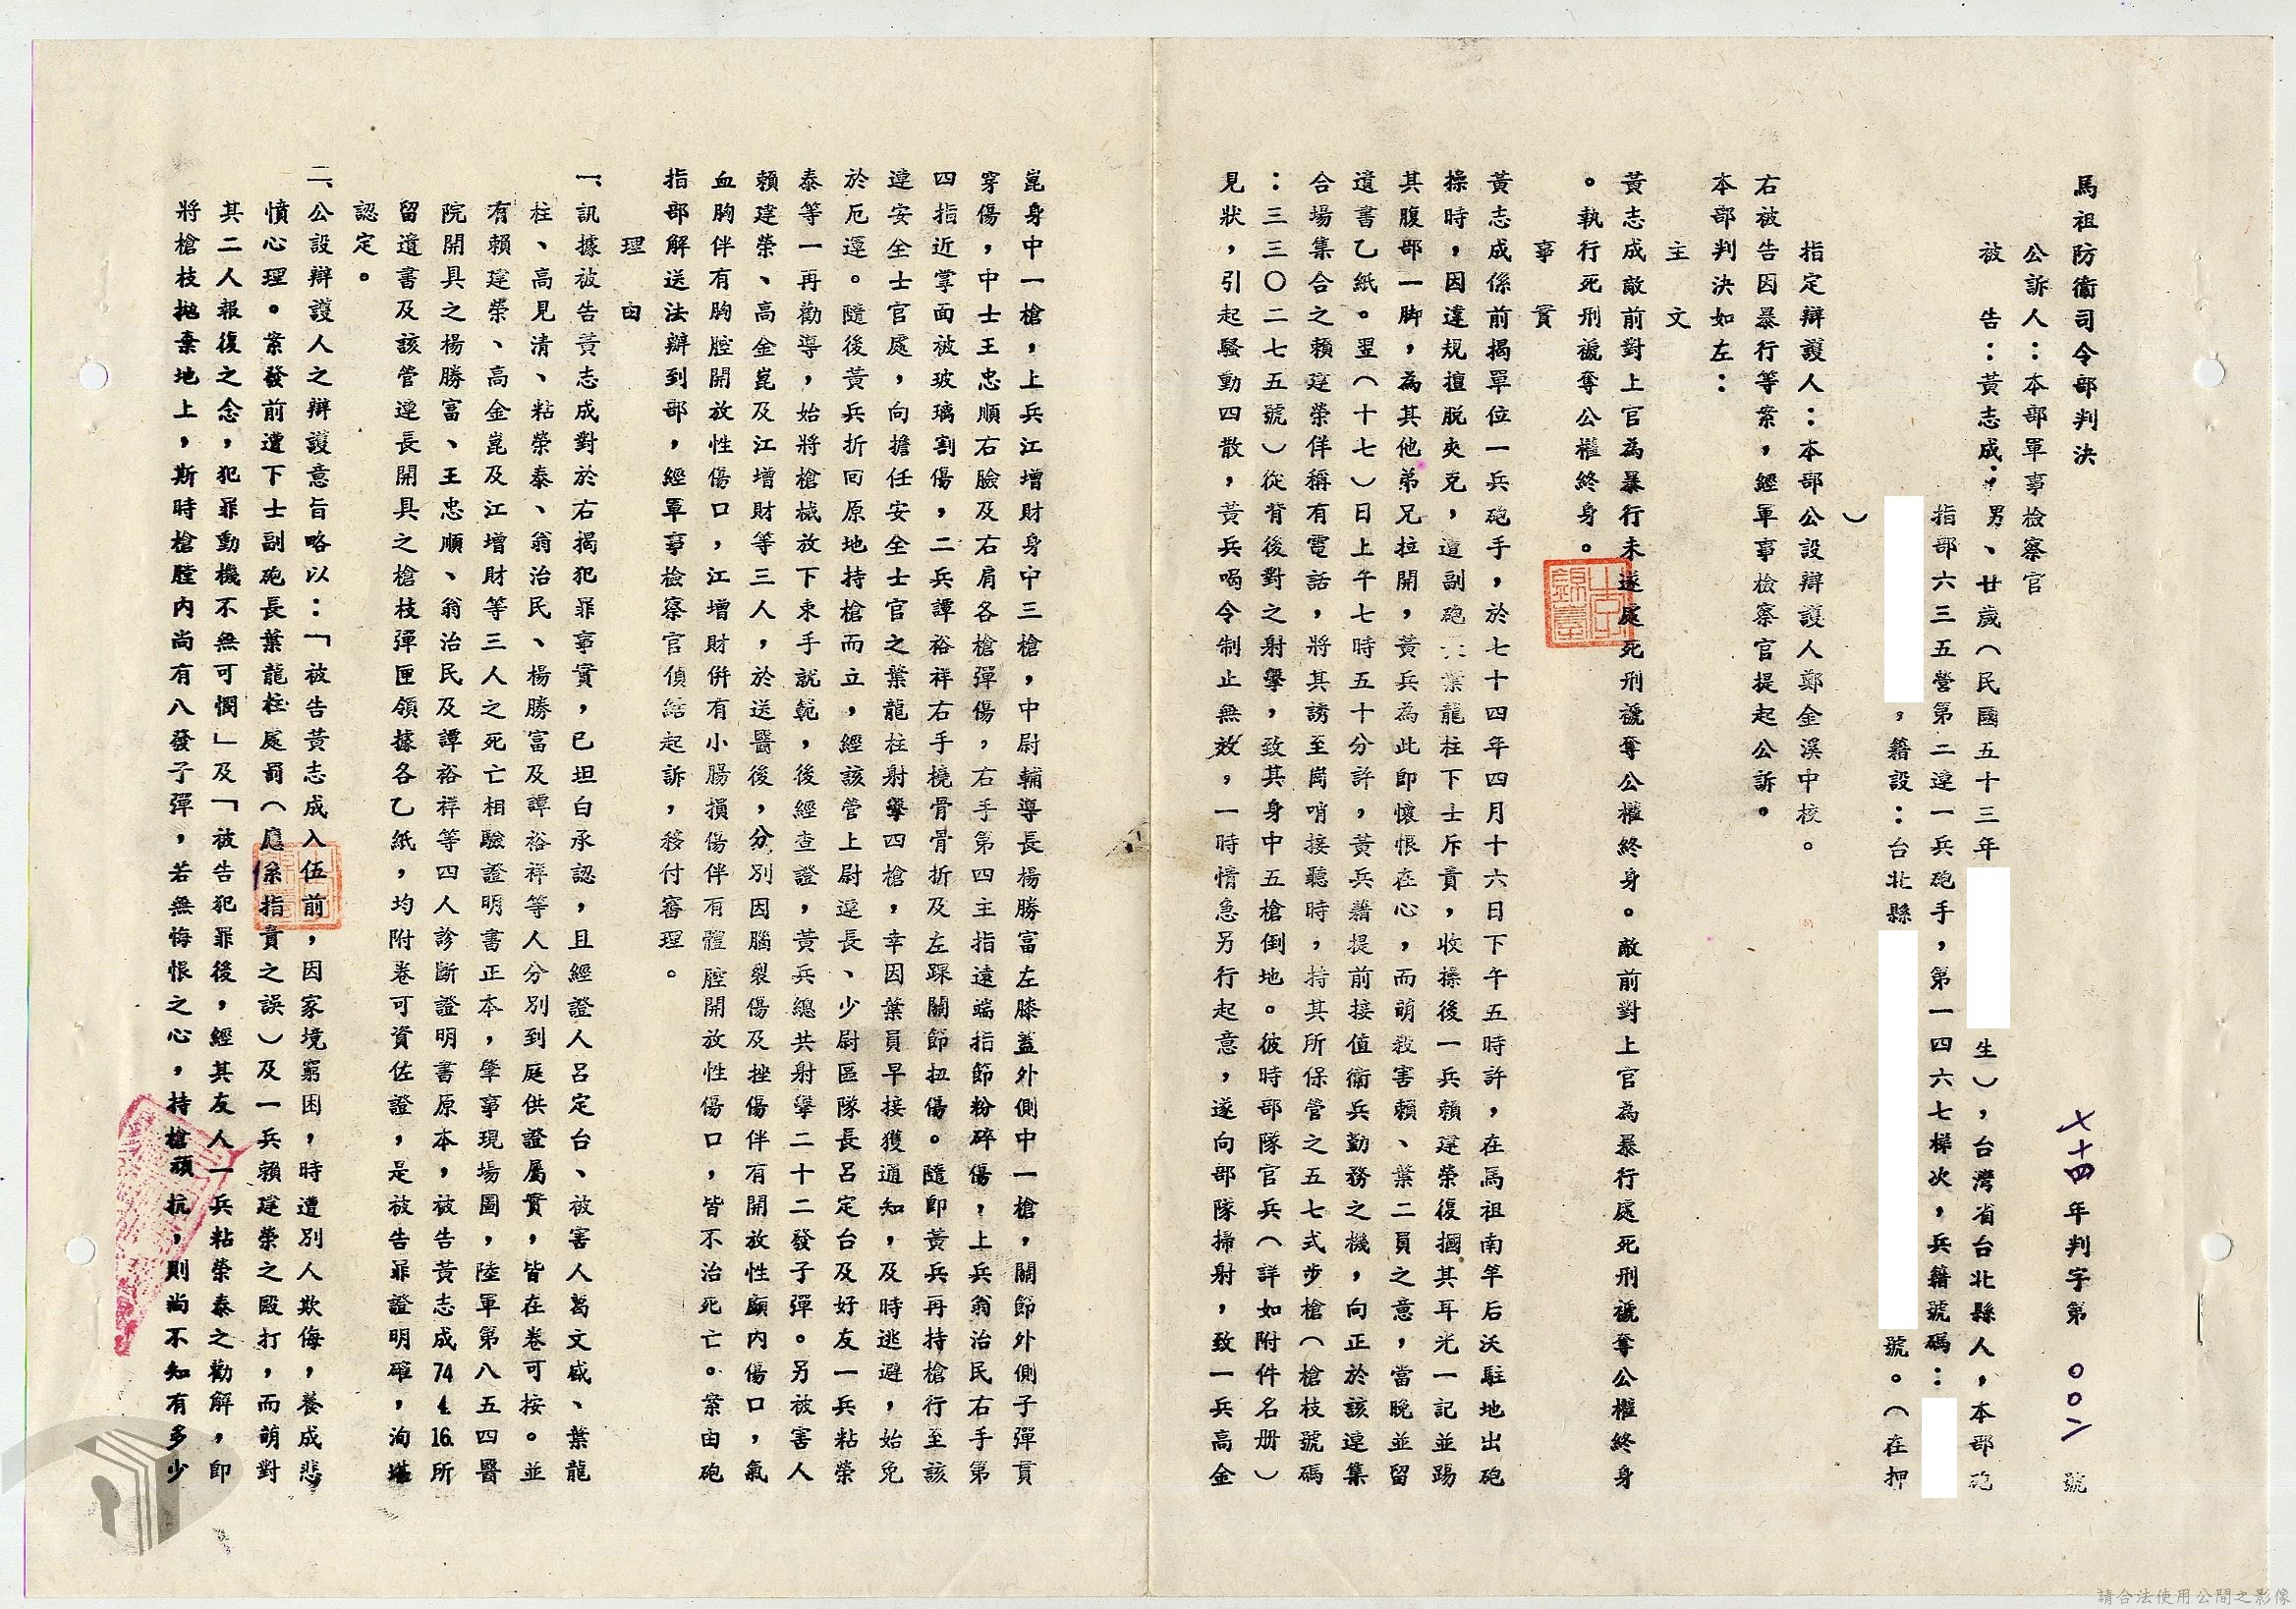 馬祖防衛司令部判決
七十四年判字第 〇〇二 號
公訴人：本部軍事檢察官
被 告：黃志成，男、廿歲（民國五十三年 生），台灣省台北縣人，本部砲
指部六三五營第二連一兵砲手，第一四六七梯次，兵籍號碼：
，籍設：台北縣 號。（在押
）
指定辯護人：本部公設辯護人鄭金溪中校。
右被告因暴行等案，經軍事檢察官提起公訴。
本部判決如左：
主 文
黃志成敵前對上官為暴行未遂處死刑褫奪公權終身。敵前對上官為暴行處死刑褫奪公權終身
。執行死刑褫奪公權終身。
事 實
黃志成係前揭單位一兵砲手，於七十四年四月十六日下午五時許，在馬祖南竿后沃駐地出砲
操時，因違規擅脫夾克，遭副砲 葉龍柱下士斥責，收操後一兵賴建榮復摑其耳光一記並踢
其腹部一脚，為其他弟兄拉開，黃兵為此即懷恨在心，而萌殺害賴、葉二員之意，當晚並留
遺書乙紙。翌（十七）日上午七時五十分許，黃兵藉提前接值衛兵勤務之機，向正於該連集
合場集合之賴建榮佯稱有電話，將其誘至崗哨接聽時，持其所保管之五七式步槍（槍枝號碼
：三三〇二七五號）從背後對之射擊，致其身中五槍倒地。彼時部隊官兵（詳如附件名册）
見狀，引起騷動四散，黃兵喝令制止無效，一時情急另行起意，遂向部隊掃射，致一兵高金
崑身中一槍，上兵江增財身中三槍，中尉輔導長楊勝富左膝蓋外側中一槍，關節外側子彈貫
穿傷，中士王忠順右臉及右肩各槍彈傷，右手第四主指遠端指節粉碎傷，上兵翁治民右手第
四指近掌面被玻璃割傷，二兵譚裕祥右手橈骨骨折及左踝關節扭傷。隨即黃兵再持槍行至該
連安全士官處，向擔任安全士官之葉龍柱射擊四槍，幸因葉員早接獲通知，及時逃避，始免
於厄運。隨後黃兵折回原地持槍而立，經該管上尉連長、少尉區隊長呂定台及好友一兵粘榮
泰等一再勸導，始將槍械放下束手就範，後經查證，黃兵總共射擊二十二發子彈。另被害人
賴建榮、高金崑及江增財等三人，於送醫後，分別因腦裂傷及挫傷伴有開放性顱內傷口，氣
血胸伴有胸腔開放性傷口，江增財併有小腸損傷伴有體腔開放性傷口，皆不治死亡。案由砲
指部解送法辦到部，經軍事檢察官偵結起訴，移付審理。
理 由
一、訊據被告黃志成對於右揭犯罪事實，已坦白承認，且經證人呂定台、被害人葛文盛、葉龍
柱、高見清、粘榮泰、翁治民、楊勝富及譚裕祥等人分別到庭供證屬實，皆在卷可按。並
有賴建榮、高金崑及江增財等三人之死亡相驗證明書正本，肇事現場圖，陸軍第八五四醫
院開具之楊勝富、王忠順、翁治民及譚裕祥等四人診斷證明書原本，被告黃志成74 4 16.所
留遺書及該管連長開具之槍枝彈匣領據各乙紙，均附卷可資佐證，是被告罪證明確，洵堪
認定。
二、公設辯護人之辯護意旨略以：「被告黃志成入伍前，因家境窮困，時遭別人欺侮，養成悲
憤心理。案發前遭下士副砲長葉龍柱處罰（應係指責之誤）及一兵賴建榮之毆打，而萌對
其二人報復之念，犯罪動機不無可憫」及「被告犯罪後，經其友人一兵粘榮泰之勸解，即
將槍枝拋棄地上，斯時槍膛內尚有八發子彈，若無悔恨之心，持槍頑抗，則尚不知有多少
請合法使用公開之影像